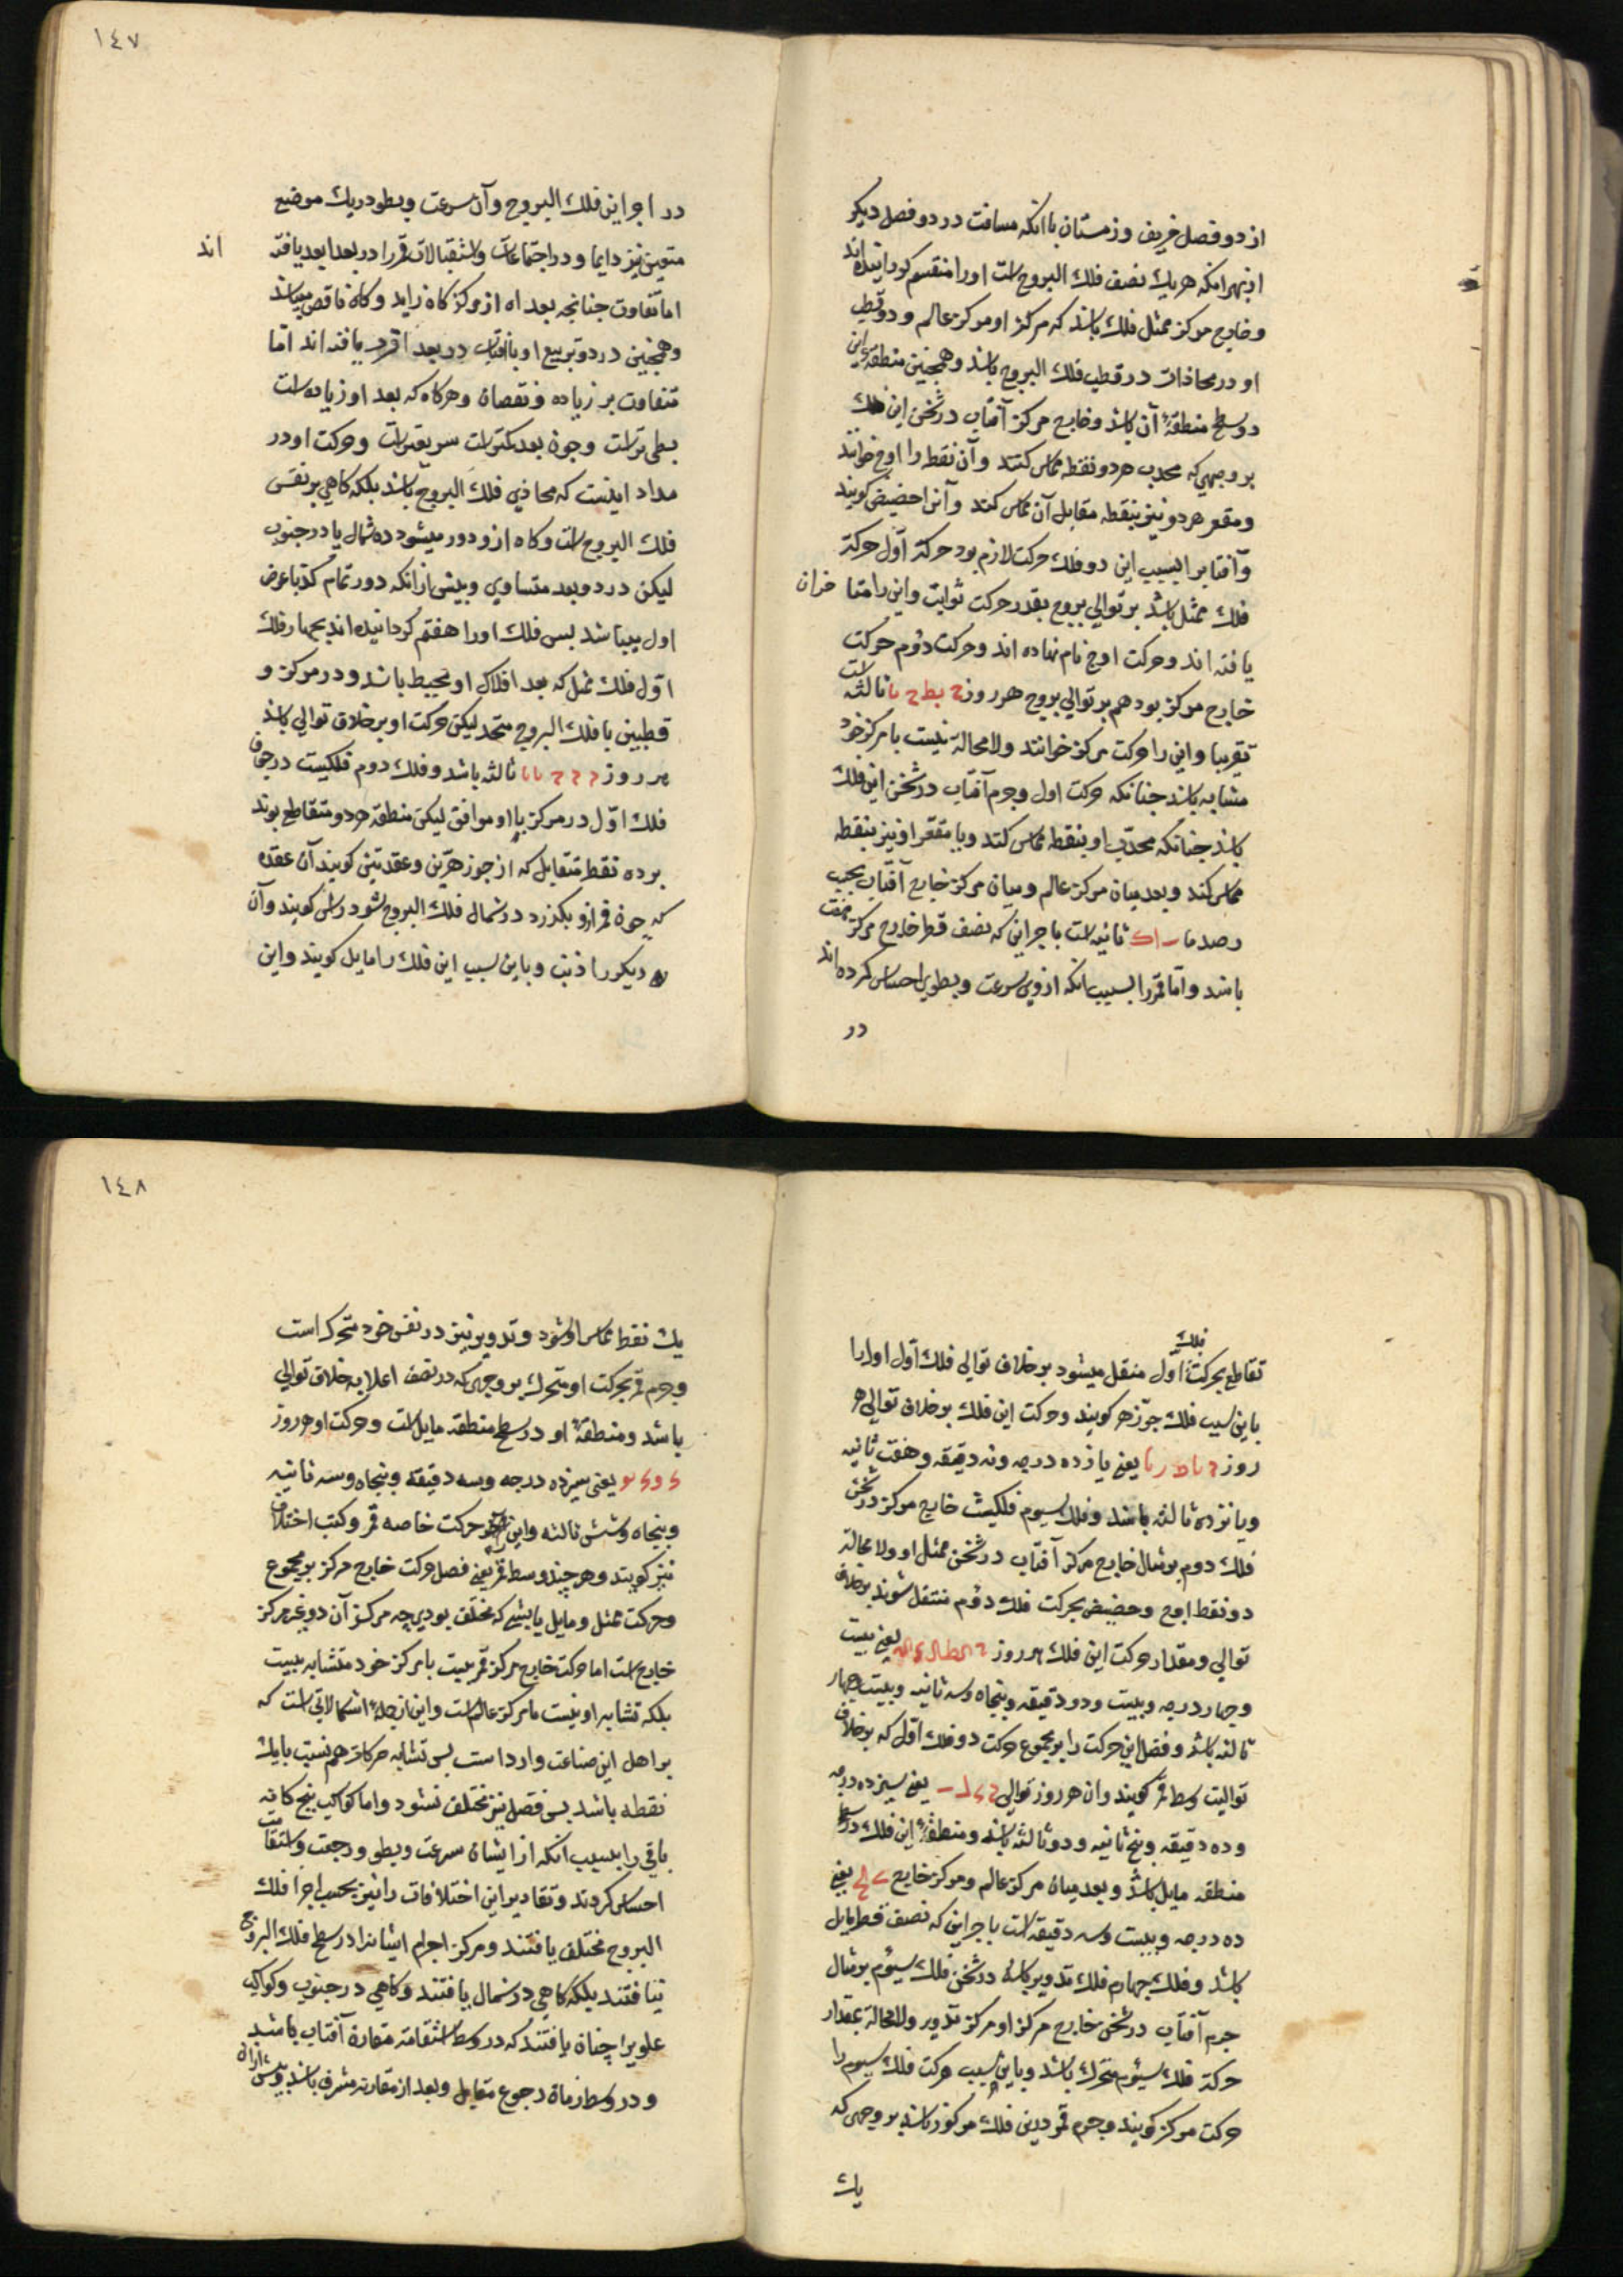 از دو فصل خریف و زمستان با انکه مسافت در دو فصل دیکر
از بهر انکه هر یك نصف فلك البروج است اورا منقسم کردانیده‌اند
و خارج مرکز ممثل فلك باشد که مرکز او مرکز عالم و دو قطب
او در محاذات در قطب فلك البروج باشد و همچنین منطقهٔ این
در سطح منطقهٔ آن باشد و خارج مرکز آفتاب در ثخن این فلك
بر وجهی که محدب هر دو نقطه مماس کنند و آن نقطه را اوج خوانند
و مقعر هر دو نیز بنقطه مقابل آن مماس کنند و آنرا حضیض کویند
و آفتابرا بسبب این دو فلك حرکت لازم بود حرکة اول حرکة
فلك ممثل باشد بر توالی بروج بقدر حرکت ثوابت و این را متا خران
یافته اند و حرکت اوج نام نهاده اند و حرکت دوم حرکت
خارج مرکز بود هم بر توالی بروج هر روز ح نط ح نا ثالثه است
تقریبا و این را حرکت مرکز خوانند ولا محالة نسبت با مرکز خود
متشابه باشد چنانکه حرکت اول و جرم آفتاب در ثخن این فلك
باشد چنانکه محدب او بنقطه مماس کند و با مقعر او نیز بنقطه
مماس کند و بعد میان مرکز عالم و میان مرکز خارج آفتاب بحسب
رصد ما ثانیه است باجزاین که نصف قطر خارج مرکز
باشد و اما قمر را بسبب انکه ازوی سرعت و بطوی احساس کرده اند
در
١٤٧
در اجزا این فلك البروج و آن سرعت و بطو در یك موضع
متعین نیز دایما و در اجتماعات و استقبالات قمر را در بعد ابعد یافته اند
اما تفاوت چنانچه بعد اه از مرکز کاه زاید و کاه ناقص میباشد
و همچنین در دو تربیع او با افتاب در بعد اقرب یافته اند اما
متفاوت بر زیاده و نقصان و هرکاه که بعد او زیاده است
بطی تر است و چون بعد کمتر است سریعتر است و حرکت او در
مدار اینست که محاذی فلك البروج باشد بلکه کاهی بر نفس
فلك البروج است و کاه ازو دور میشود ده شمال یا در جنوب
لیکن در دو بعد متساوی و بیش از انکه دور تمام کند با عرض
اول میباشد بس فلك اورا هفتم کردانیده اند بچهار فلك
اول فلك ممثل که بعد افلاك او محیط باشد و در مرکز و
قطبین با فلك البروج متحد لیکن حرکت او بر خلاف توالی باشد
هر روز ثالثه باشد و فلك دوم فلکیست در جوف
فلك اول در مرکز با او موافق لیکن منطقه هر دو متقاطع بوند
بر ده نقط متقابل که از جوزهرین و عقدتین کویند آن عقده
که چون قمر ازو بکذرد در شمال فلك البروج شود راس کویند و آن
دیکر را ذنب و باین سبب این فلك را مایل کویند و این
تقاطع بحرکت فلك اول منتقل میشود بر خلاف توالی فلك اول اورا
باین سبب فلك جوزهر کویند و حرکت این فلك بر خلاف توالی هر
روز یعنی یازده درجه و نه دقیقه و هفت ثانیه
و پانزده ثالثه باشد و فلك سیوم فلکیست خارج مرکز در ثخن
فلك دوم بر مثال خارج مرکز آفتاب در ثخن ممثل او ولا محالة
دو نقط اوج و حضیض بحرکت فلك دوم منتقل شوند بر خلاف
توالی و مقدار حرکت این فلك هر روز یعنی بیست
و چهار درجه و بیست و دو دقیقه و پنجاه و سه ثانیه و بیست چهار
ثالثه باشد و فضل این حرکت را بر مجموع حرکت دو فلك اول که بر خلاف
توالیت وسط قمر کویند و ان هر روز توالی یعنی سیزده درجه
و ده دقیقه و پنج ثانیه و دو ثالثه باشد و منطقهٔ این فلك در سطح
منطقه مایل باشد و بعد میان مرکز عالم و مرکز خارج یعنی
ده درجه و بیست و سه دقیقه است باجزاین که نصف قطر مایل
باشد و فلك چهارم فلك تدویر باشد در ثخن فلك سیوم بر مثال
جرم آفتاب در ثخن خارج مرکز او مرکز تدویر ولا محالة بمقدار
حرکة فلك سیوم متحرك باشد و باین سبب حرکت فلك سیوم را
حرکت مرکز کویند و جرم قمر درین فلك مرکوز باشد بر وجهی که
یك
١٤٨
یك نقط مماس او شود و تدویر نیز در نفس خود متحرك است
و جرم قمر بحرکت او متحرك بر وجهی که در نصف اعلا به خلاف توالی
باشد و منطقهٔ او در سطح منطقه مایل است و حرکت او هر روز
یعنی سیزده درجه و سه دقیقه و پنجاه و سه ثانیه
و پنجاه و شش ثالثه و این حرکت خاصه قمر و کتب اختلاف
نیز کویند و هر چند وسط قمر یعنی فضل حرکت خارج مرکز بر مجموع
و حرکت ممثل و مایل بایستی که مختلف بودی چه مرکز آن دو غیر مرکز
خارج است اما حرکت خارج مرکز قمر نیست با مرکز خود متشابه نیست
بلکه تشابه او نسبت با مرکز عالم است و این از جملهٔ اشکالاتی است که
بر اهل این صناعت وارد است بس تشابه حرکات هم نسبت با یك
نقطه باشد بس فضل نیز مختلف نشود و اما کواکب پنج کانه
باقی را بسبب انکه از ایشان سرعت و بطو و رجعت و استقامت
احساس کردند و تقادیر این اختلافات را نیز بحسب اجزا فلك
البروج مختلف یافتند و مرکز اجرام ایشانرا در سطح فلك البروج
نیافتند بلکه کاهی در شمال یافتند و کاهی در جنوب و کواکب
علویرا چنان یافتند که در وسط استقامة مقارن آفتاب باشند
و در وسط زمان رجوع مقابل و بعد از مقارنه مشرف باشند و پیش ازان